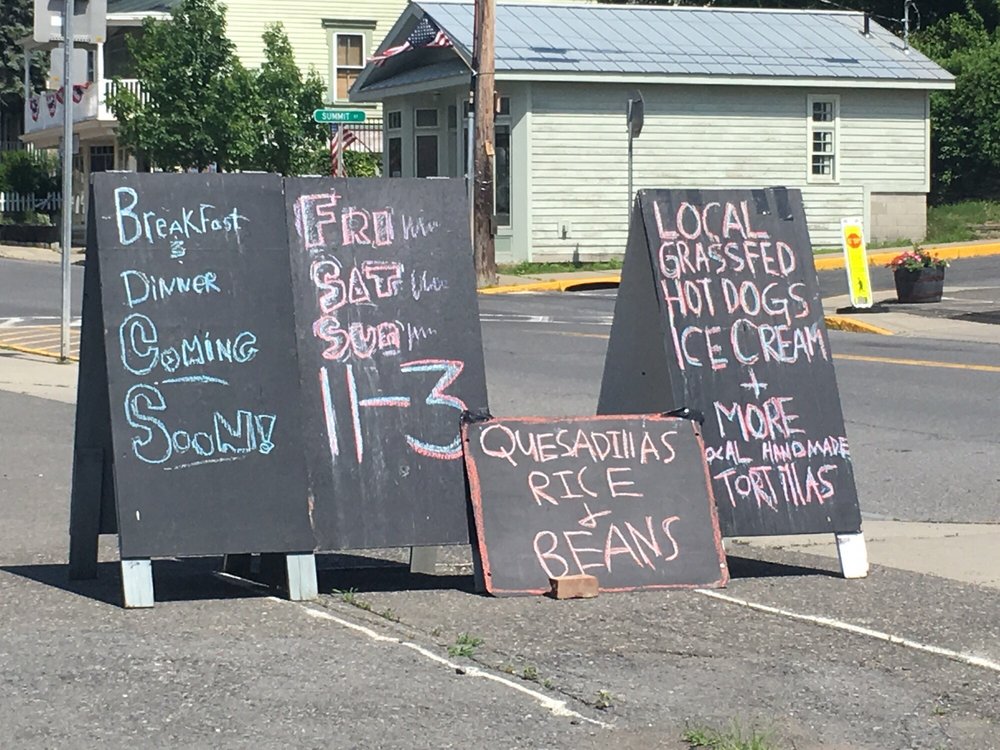 BreakFast
&
Dinner
Coming
Soon!
FRI
SAT
SUN
11-3
LOCAL
GRASSFED
HOT DOGS
ICE CREAM
+
MORE
LOCAL HANDMADE
TORTIllAS
QUESADIllAS
RICE
+
BEANS
SUMMIT ST